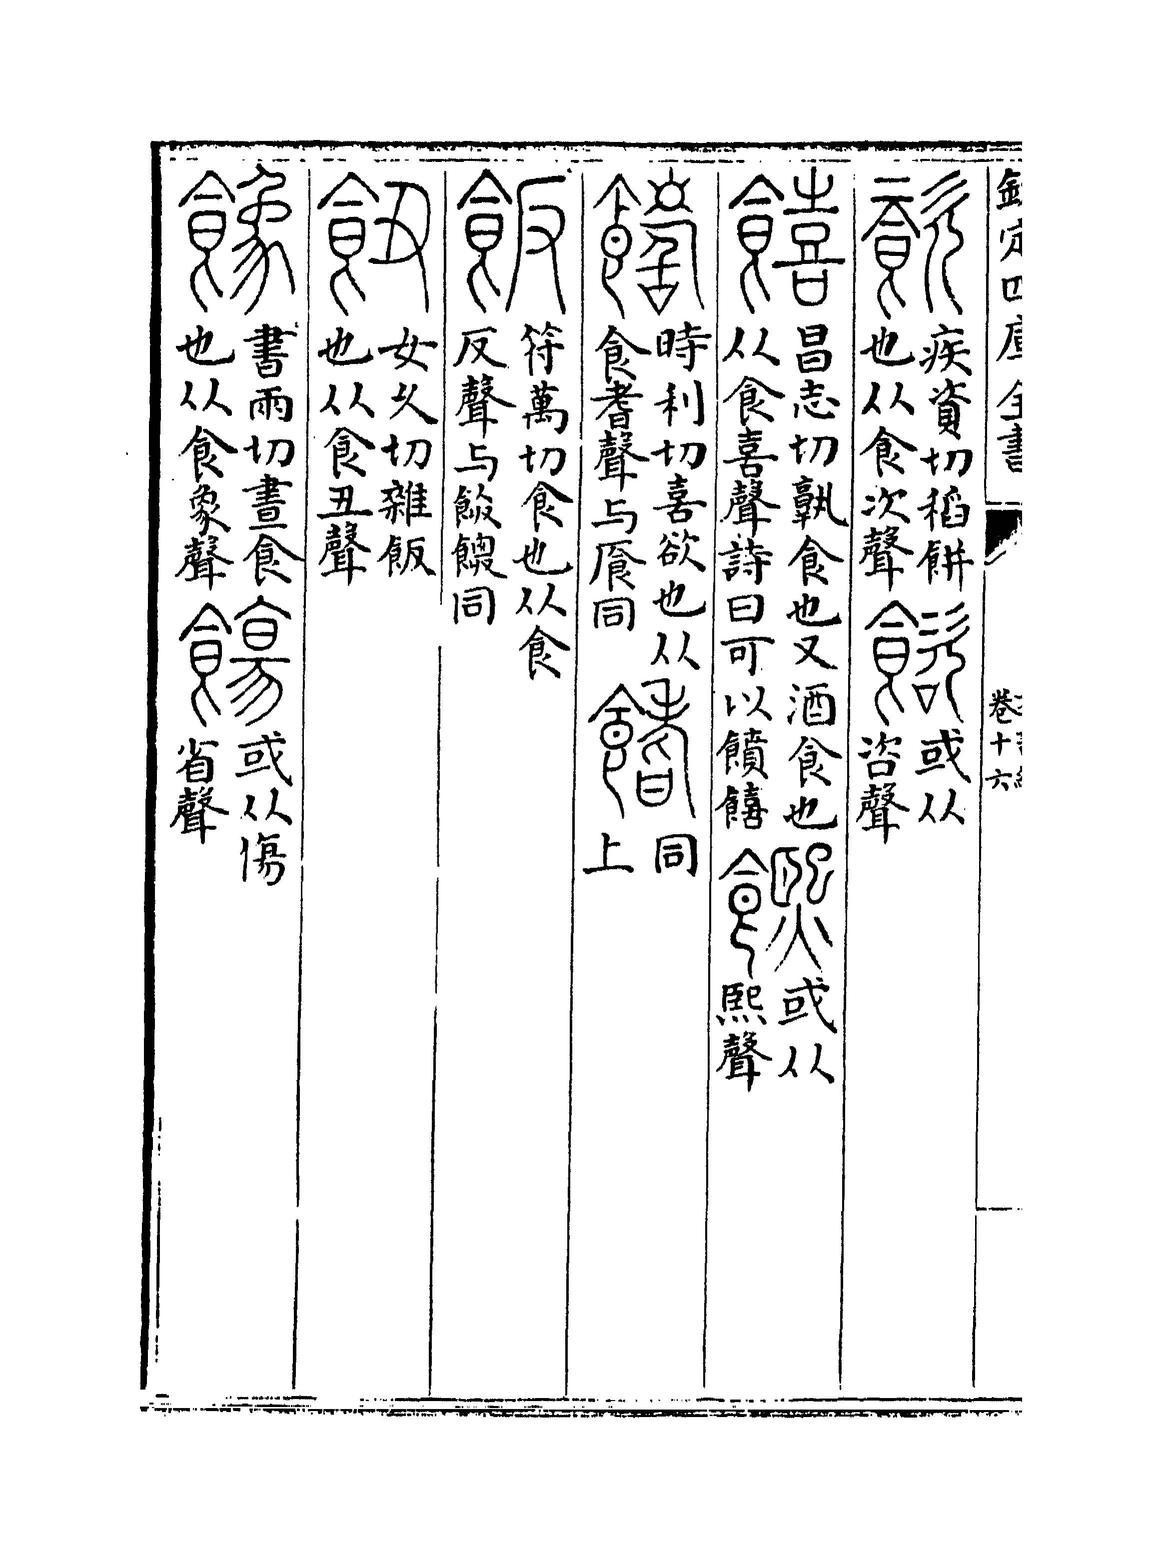 欽定四庫全書
卷十六
餈
疾資切稻餅
也从食次聲
或从
咨聲
饎
昌志切孰食也又酒食也
从食喜聲詩曰可以饙饎
或从
熙聲
時利切喜欲也从
食耆聲与同
同
上
飯
符萬切食也从食
反聲与同
女久切雜飯
也从食丑聲
書雨切晝食
也从食象聲
或从傷
省聲